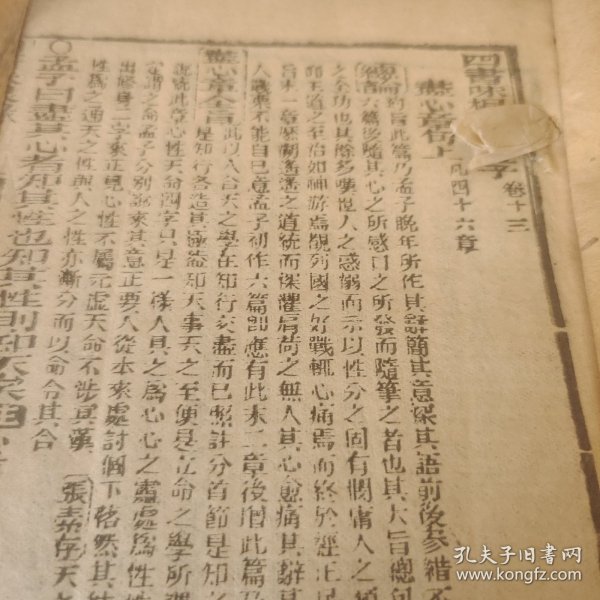 四書味根 子 卷十三
盡心章句上 凡四十六章
約旨此篇乃孟子晚年所作其辭簡其意深其語前後參錯不
合有六篇後隨其心之所感口之所發而隨筆之者也其大旨總
之全功也其餘多嘆世人之惑溺而示以性分之固有憫庸人之
師王道之至治如神游焉觀列國之好戰輒心痛焉而終於經正
旨末一章歷敘遙遙之道統而深懼肩荷之無人其心愈痛其辭其
人感樂不能自已意孟子初作六篇即應有此末一章後增此篇乃
盡心章全旨 此以人合天之學在知行交盡而已照註分首節是知
是知行各造其極蓋知天事天之至便是立命之學所
說統此章心性天命四字只是一樣人具之為心心之靈處為性
謂之命孟子分別說來其意正要人從本來處討個下落然其
出修身二字來正見心性不屬元虛天命不涉窅漠
性為之通天之性與人之性亦漸分而以命令其合 張素存天
○孟子曰盡其心者知其性也知其性則知天矣
孔夫子旧书网
www.kongfz.com